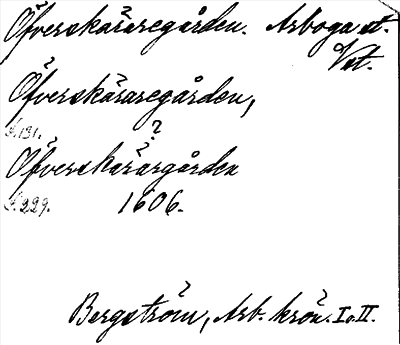 Öfverskäraregården. Arboga st.
Vstm.
Öfverskäraregården,
S. 131. ?
Öfverskärargården
S. 229. 1606.
Bergström, Arb. krön. I o. II.